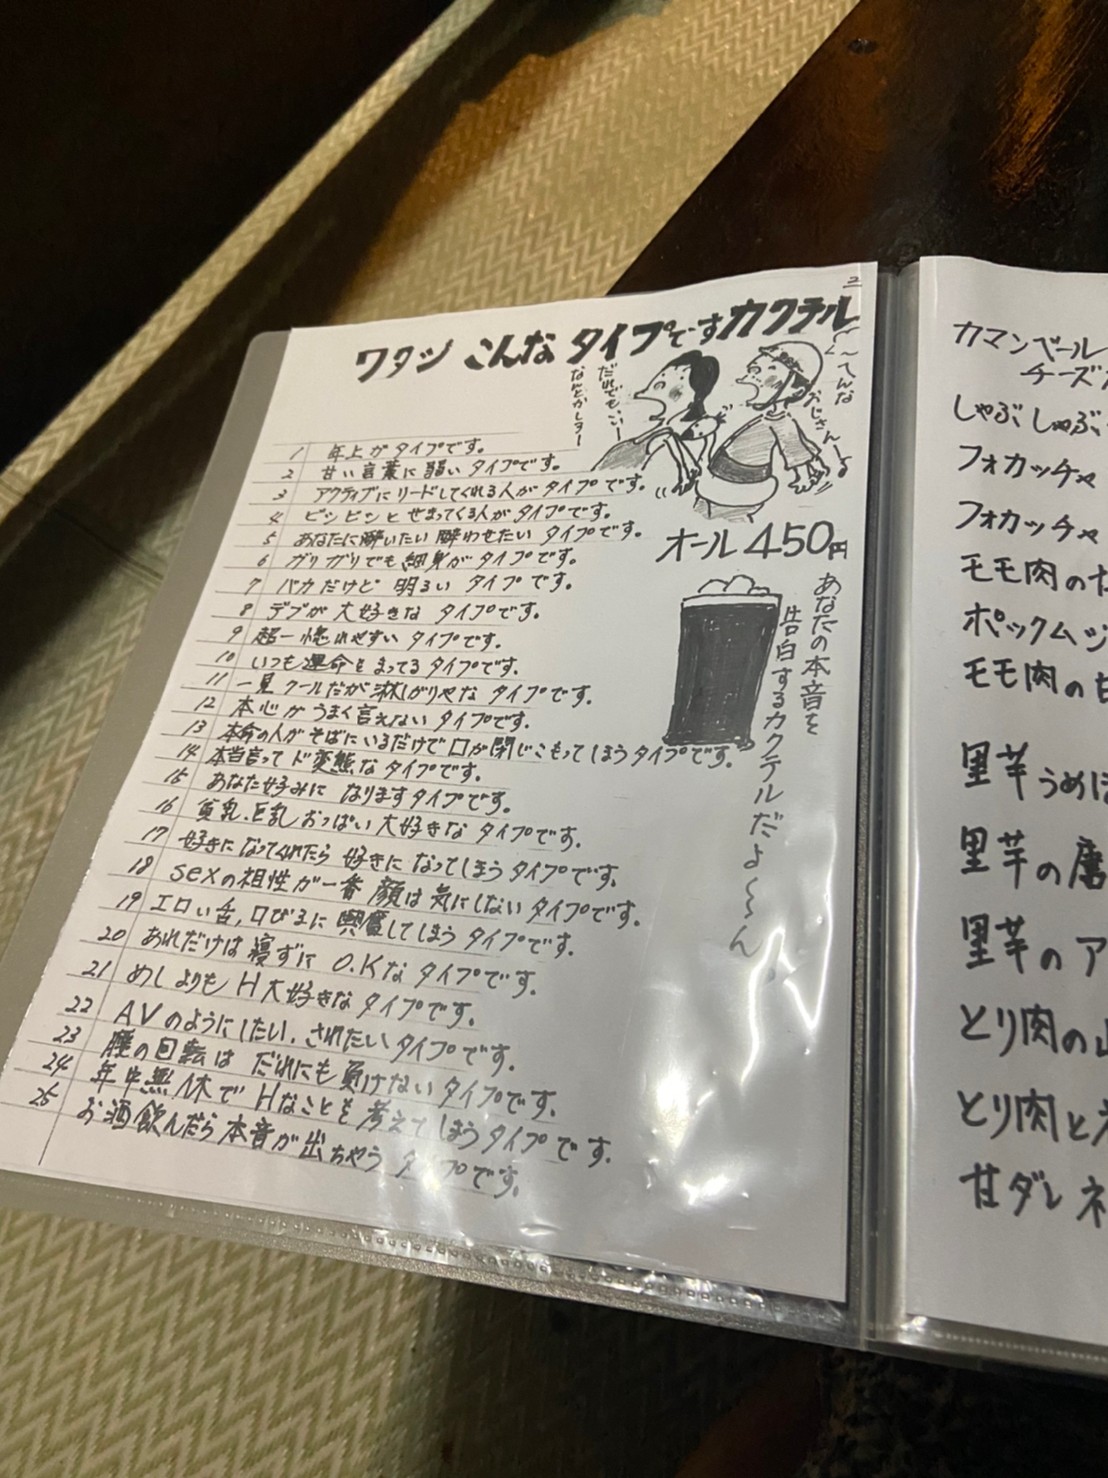 2
ワタシ こんな タイプですカクテル
だれでもいいー
なんとかしてー
え〜てんな
おじさん〜よ
1 年上がタイプです。
2 甘い言葉に弱いタイプです。
3 アクティブにリードしてくれる人がタイプです。
4 ビンビンとせまってくる人がタイプです。
5 あなたに酔いたい酔わせたいタイプです。
6 ガリガリでも細身がタイプです。
7 バカだけど明るいタイプです。
8 デブが大好きなタイプです。
9 超一惚れせすいタイプです。
10 いつも運命をまってるタイプです。
11 一見クールだが淋しがりやなタイプです。
12 本心がうまく言えないタイプです。
13 本命の人がそばにいるだけで口が閉じこもってしまうタイプです。
14 本当言ってド変態なタイプです。
15 あなた好みになりますタイプです。
16 貧乳、巨乳おっぱい大好きなタイプです。
17 好きになってくれたら好きになってしまうタイプです。
18 sexの相性が一番 顔は気にしないタイプです。
19 エロい舌,口びるに興奮してしまうタイプです。
20 あれだけは寝ずにO.Kなタイプです。
21 めしよりもH大好きなタイプです。
22 AVのようにしたい,されたいタイプです。
23 腰の回転はだれにも負けないタイプです。
24 年中無休でHなことを考えてしまうタイプです。
25 お酒飲んだら本音が出ちゃうタイプです。
オール450円
あなたの本音を
告白するカクテルだよ〜〜ん。
カマンベール
チーズ
しゃぶしゃぶ
フォカッチャ
フォカッチャ
モモ肉の
ポックム
モモ肉の甘
里芋うめ
里芋の
里芋のア
とり肉の
とり肉と
甘ダレネ